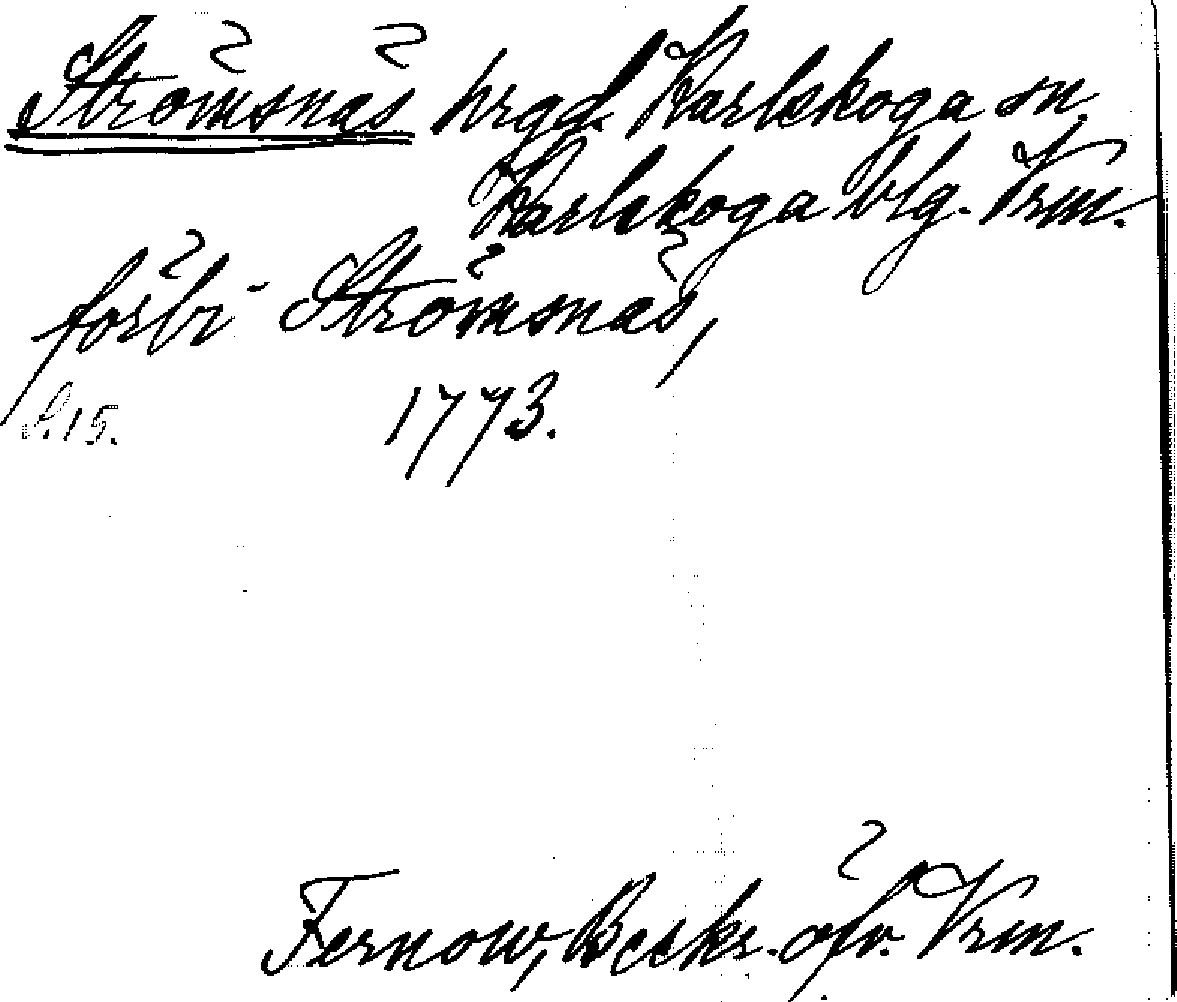 Strömsnäs hrgd. Karlskoga sn,
Karlskoga blg. Vrm.
förbi Strömsnäs,
S. 15. 1773.
Fernow, Beskr. öfv. Vrm.